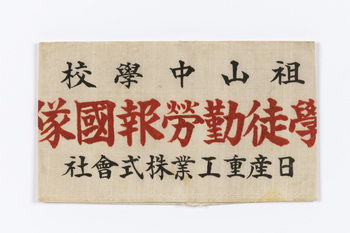 祖山中學校
學徒勤勞報國隊
日産重工業株式會社